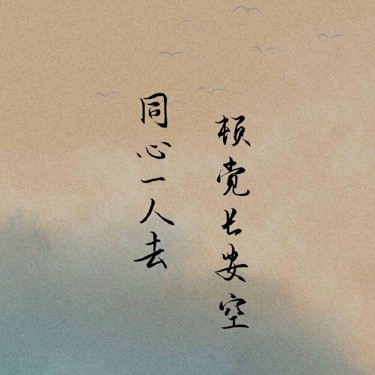 同心一人去
顿觉长安空